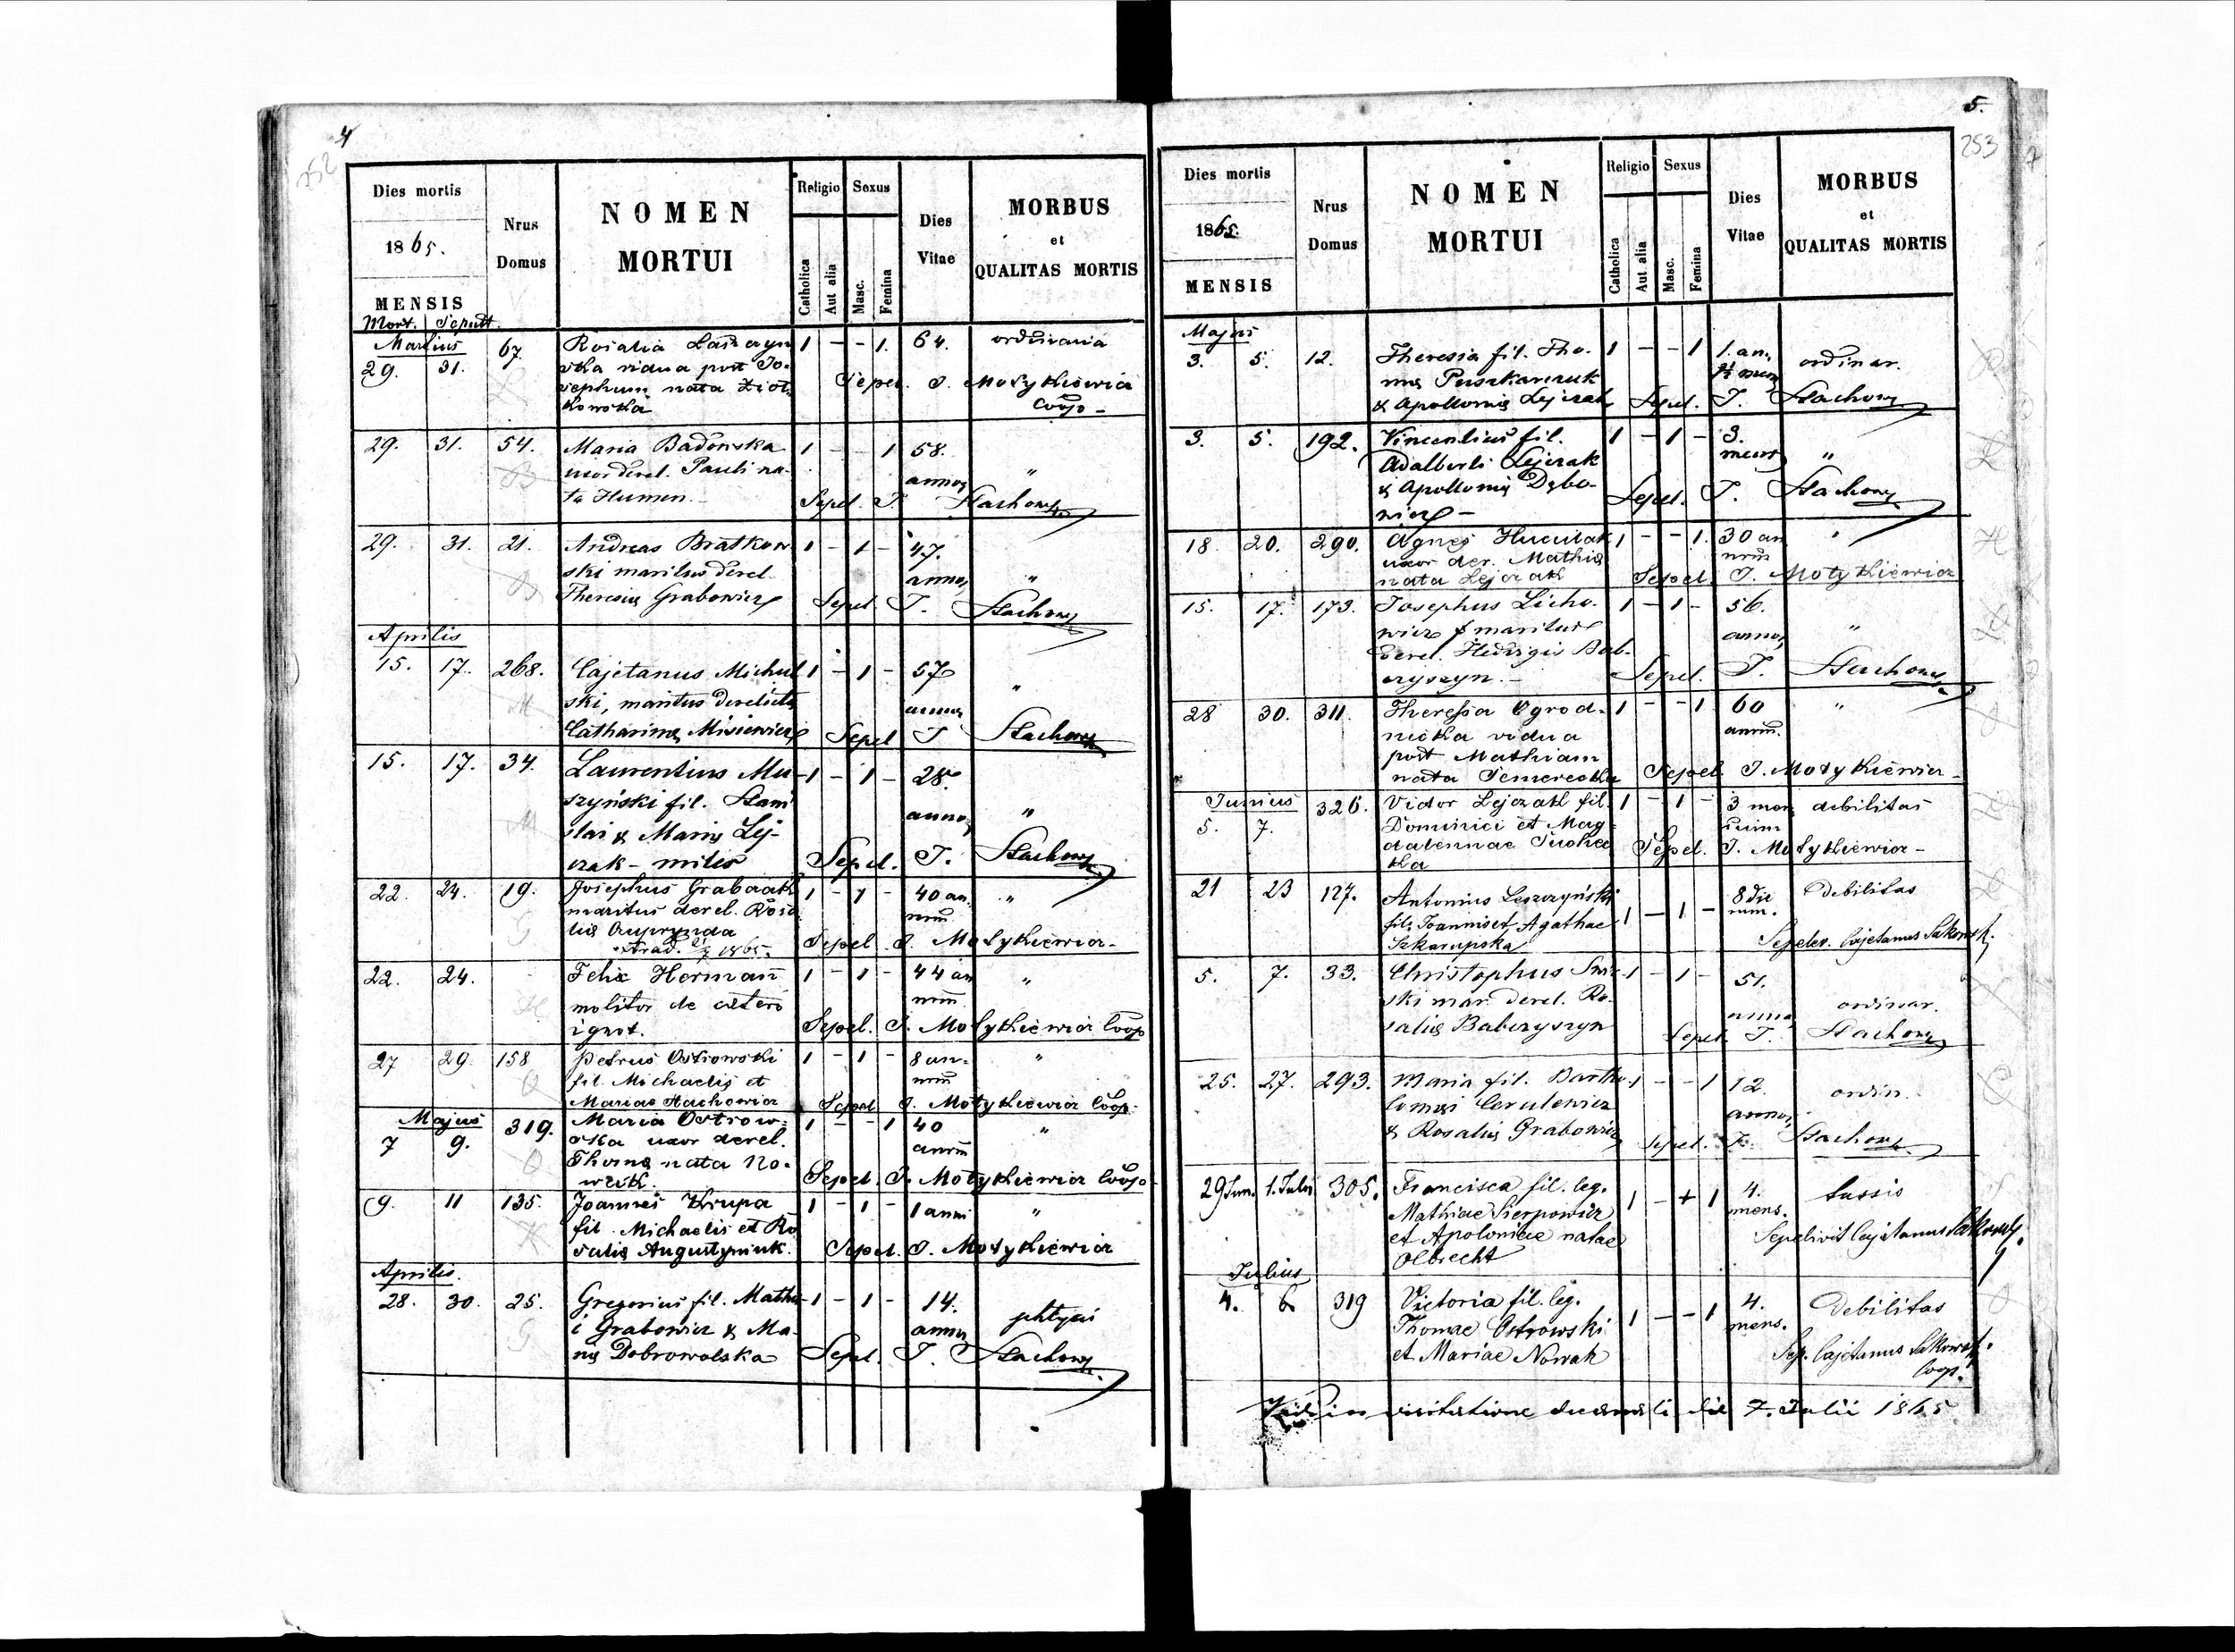 4
252
Dies mortis
1865.
MENSIS
Mort. Sepult.
Nrus
Domus
NOMEN
MORTUI
Religio
Sexus
Catholica
Aut alia
Masc.
Femina
Dies
Vitae
MORBUS
et
QUALITAS MORTIS
Martius
29. 31. 67. Rosalia 1 - - 1. 64. ordinaria
vidua post Jo-
sephum nata
Sepel. J. Motykiewicz
Coop-
29. 31. 54. Maria Badowska 1 - - 1 58. "
uxor derel. Pauli na- annor
ta Humen. - Sepel. T. Stachowicz
29. 31. 21. Andreas Bratkow 1 - 1 - 47.
ski maritus derel. annor "
Theresiæ Grabowicz Sepel T. Stachowicz
Aprilis
15. 17. 268. Cajetanus Michul 1 - 1 - 57
ski, maritus derelicta annor "
Catharinæ Misiewicz Sepel T Stachowicz
15. 17. 34. Laurentius Mu- 1 - 1 - 28.
szyński fil. Stani annor "
slai & Mariæ Lej-
czak - miles Sepel. T. Stachowicz
22. 24. 19. Josephus 1 - 1 - 40 an "
maritus derel. Rosa norum
liæ
1865. Sepel. J. Motykiewicz-
22. 24. Felix Hermann 1 - 1 - 44 an "
molitor de cætero norum
ignot. Sepel. J. Motykiewicz Coop
27 29. 158 Petrus Ostrowski 1 - 1 - 8 an- "
fil. Michaelis et norum
Mariae Stachowicz Sepel J. Motykiewicz Coop.
Majus
7 9. 319. Maria Ostrow- 1 - - 1 40 "
ska uxor derel. annorum
Thomæ nata No-
wak. Sepel. J. Motykiewicz Coop-
9. 11 135. Joannes Krupa 1 - 1 - 1 anni "
fil. Michaelis et Ro
saliæ Augustyniuk. Sepel. J. Motykiewicz
Aprilis.
28. 30. 25. Gregorius fil. Mathæ 1 - 1 - 14. phtysi
i Grabowicz & Ma- annor
riæ Dobrowolska Sepel. T. Stachowicz
5.
253
Dies mortis
1865.
MENSIS
Nrus
Domus
NOMEN
MORTUI
Religio
Sexus
Catholica
Aut alia
Masc.
Femina
Dies
Vitae
MORBUS
et
QUALITAS MORTIS
Majus
3. 5. 12. Theresia fil. Tho- 1 - - 1 1. an. ordinar.
mæ Puszkarczuk
& Apolloniæ Lejczak Sepel. T. Stachowicz
3. 5. 192. Vincentius fil. 1 - 1 - 3. "
Adalberti Lejczak mens
& Apolloniæ Dębo-
wicz - Sepel. T. Stachowicz
18. 20. 290. Agnes Huculak 1 - - 1. 30 an "
uxor der. Mathiæ norum
nata Lejczak Sepel. J. Motykiewicz
15. 17. 173. Josephus Licho- 1 - 1 - 56. "
wicz maritus annor
derel. Hedvigis Bab-
czyszyn. - Sepel. T. Stachowicz
28 30. 311. Theressa Ogrod- 1 - - 1 60 "
nicka vidua annorum.
post Mathiam
nata Sepel J. Motykiewicz-
Junius
5. 7. 326. Victor Lejczak fil. 1 - 1 - 3 men debilitas
Dominici et Mag- sium
dalennae
Sepel. J. Motykiewicz-
21 23 127. Antonius Leszczyński 1 - 1 - 8 die debilitas
fil. Joannis et Agathae rum.
Szkarupska Sepelev. Cajetanus Sakowsk.
5. 7. 33. Christophus 1 - 1 - 51.
ski mar. derel. Ro- annor ordinar.
saliæ Babczyszyn Sepel. T. Stachowicz
25. 27. 293. Maria fil. Bartho 1 - - 1 12. ordin.
lomæi Cerulewicz annor
& Rosaliæ Grabowicz Sepel. T. Stachowicz
29 Jun. 1. Julii 305. Francisca fil. leg. 1 - + 1 4. tussis
Mathiae Sierpowicz mens.
et Apoloniae natae Sepelivit Cajetanus Sakowsk.
Olbrecht
Julius
4. 6. 319 Victoria fil. leg. 1 - - 1 4. Debilitas
Thomae Ostrowski mens.
et Mariae Nowak Sep. Cajetanus Sakowsk.
Coop.
in visitatione decanali die 7. Julii 1865